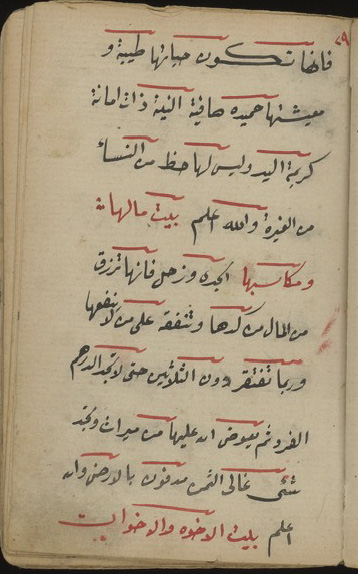 ٧٩
فانها تكون حياتها طيبة و
معيشتها حميده صافية النية ذات امانة
كريمة اليد وليس لها حظ من النساء
من الغيرة والله اعلم بيت مالها
ومكاسبها الجدى وزحل فانها ترزق
من المال من كدها وتنفقه على من لا ينفعها
وربما تفتقر دون الثلاثين حتى لا تجد الدرهم
الفرد ثم يعوض الله عليها من ميراث وتجد
شئ غالى الثمن مدفون بالارض والله
اعلم بيت الاخوه والاخوات